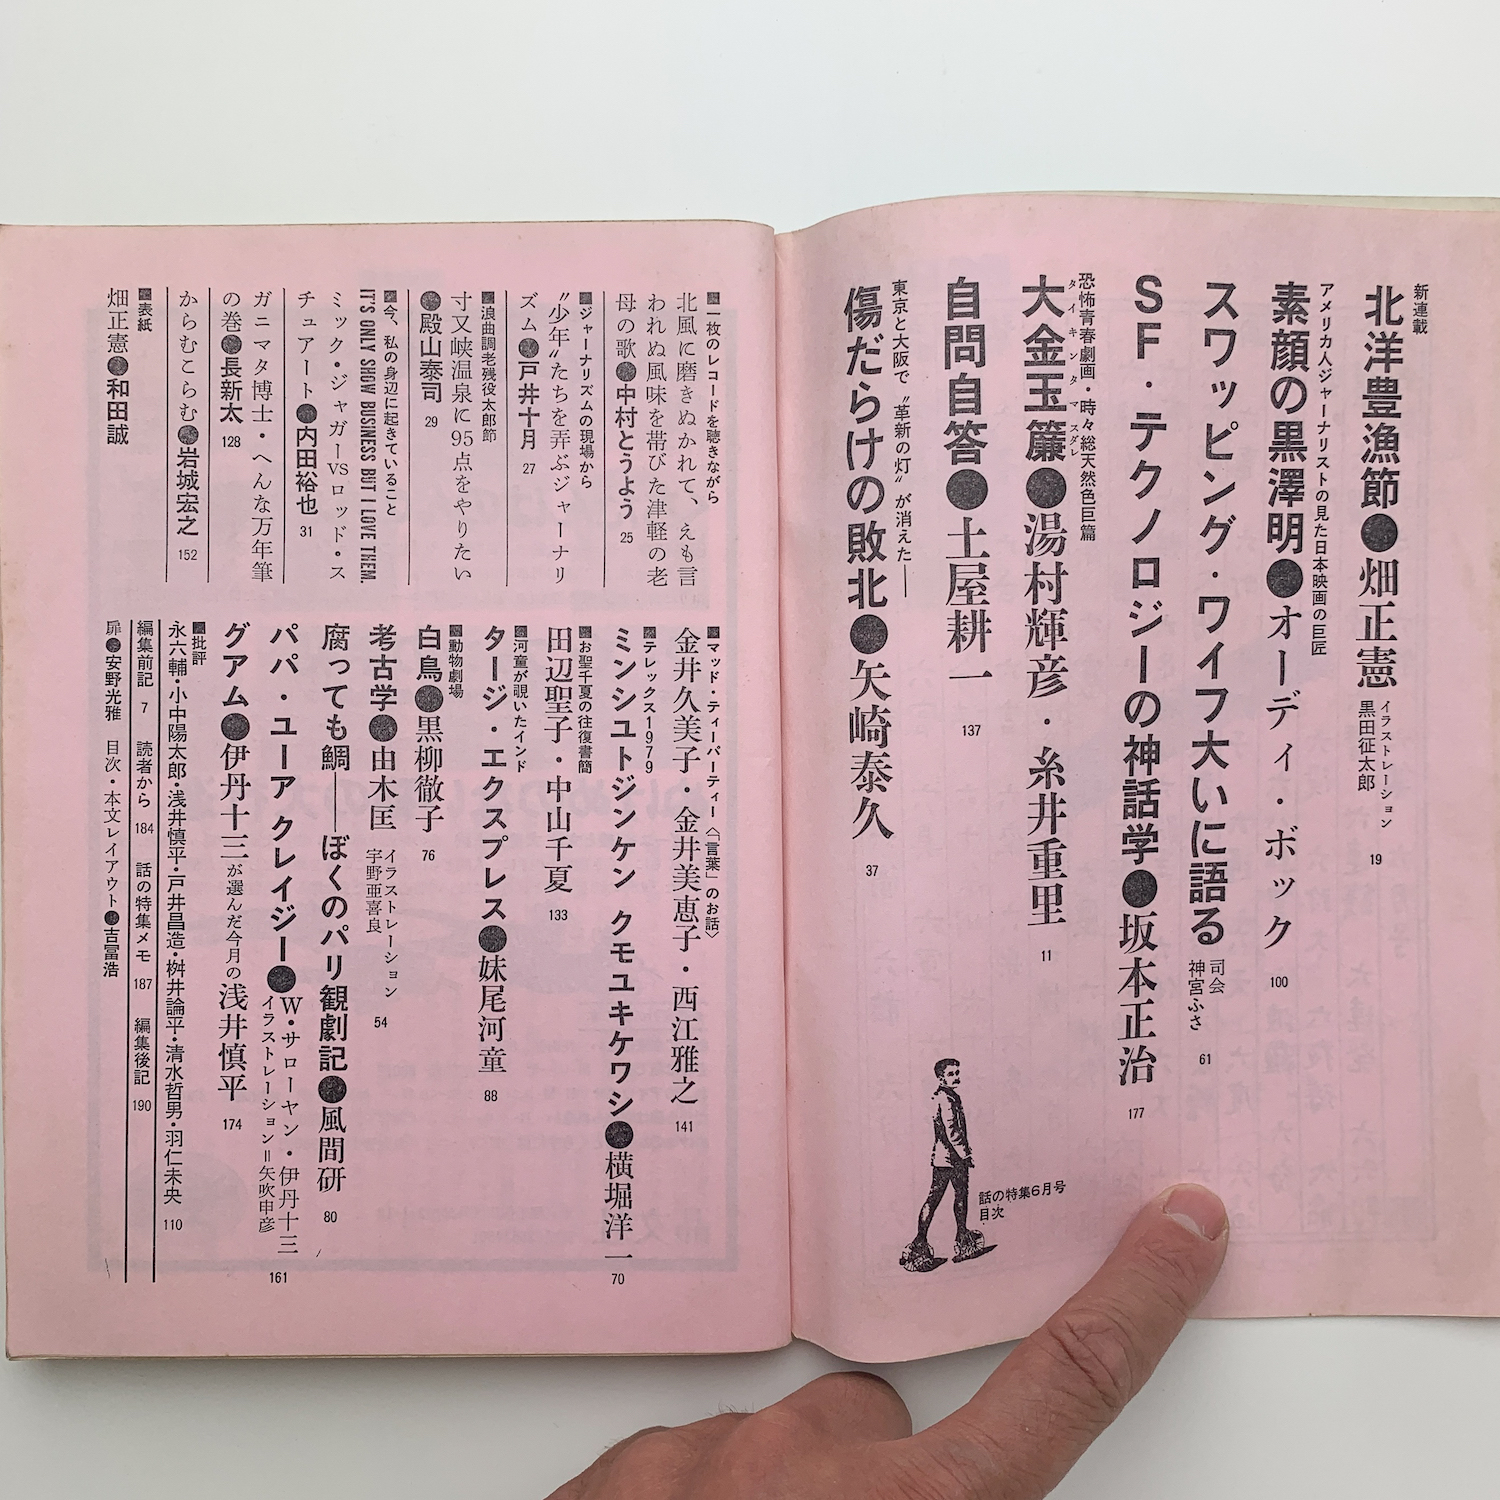 新連載
北洋豊漁節●畑正憲
イラストレーション
黒田征太郎
19
アメリカ人ジャーナリストの見た日本映画の巨匠
素顔の黒澤明●オーディ・ボック
100
スワッピング・ワイフ大いに語る
司会
神宮ふさ
61
SF・テクノロジーの神話学●坂本正治
177
恐怖青春劇画・時々総天然色巨篇
大金玉簾●湯村輝彦・糸井重里
タイキンタマスダレ
11
自問自答●土屋耕一
137
東京と大阪で〝革新の灯〟が消えた——
傷だらけの敗北●矢崎泰久
37
話の特集6月号
目次
■一枚のレコードを聴きながら
北風に磨きぬかれて、えも言
われぬ風味を帯びた津軽の老
母の歌●中村とうよう 25
■ジャーナリズムの現場から
〝少年〟たちを弄ぶジャーナリ
ズム●戸井十月 27
■浪曲調老残役太郎節
寸又峡温泉に95点をやりたい
●殿山泰司 29
■今、私の身辺に起きていること
IT'S ONLY SHOW BUSINESS BUT I LOVE THEM.
ミック・ジャガーVSロッド・ス
チュアート●内田裕也 31
ガニマタ博士・へんな万年筆
の巻●長新太 128
からむこらむ●岩城宏之 152
■表紙
畑正憲●和田誠
■マッド・ティーパーティー〈「言葉」のお話〉
金井久美子・金井美恵子・西江雅之 141
■テレックス1979
ミンシュトジンケン クモユキケワシ●横堀洋一 70
■お聖千夏の往復書簡
田辺聖子・中山千夏 133
■河童が覗いたインド
タージ・エクスプレス●妹尾河童 88
■動物劇場
白鳥●黒柳徹子 76
考古学●由木匡
イラストレーション
宇野亜喜良
54
腐っても鯛——ぼくのパリ観劇記●風間研 80
パパ・ユーア クレイジー●W・サローヤン・伊丹十三
イラストレーション=矢吹申彦
161
グアム●伊丹十三が選んだ今月の浅井慎平 174
■批評
永六輔・小中陽太郎・浅井慎平・戸井昌造・桝井論平・清水哲男・羽仁未央 110
編集前記 7 読者から 184 話の特集メモ 187 編集後記 190
扉●安野光雅 目次・本文レイアウト●吉冨浩